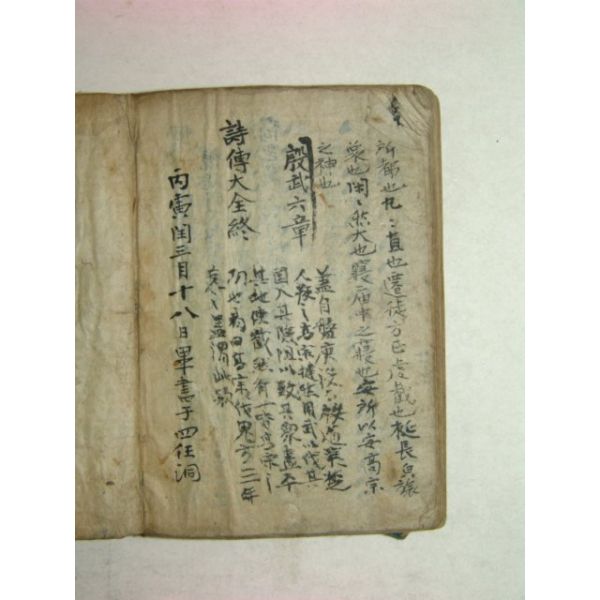 所都也丸〻直也遷徙方正虔截也梴長皃旅
衆也閑〻然大也寢廟中之寢也安所以安高宗
之神也
殷武六章
蓋自盤庚沒而殷道衰楚
人叛之高宗撻然用武以伐其
國入其險阻以致其衆盡平
其地使截然齊一皆高宗之
功也易曰高宗伐鬼方三年
克之蓋謂此歟
詩傳大全終
丙寅閏三月十八日畢書于四任洞